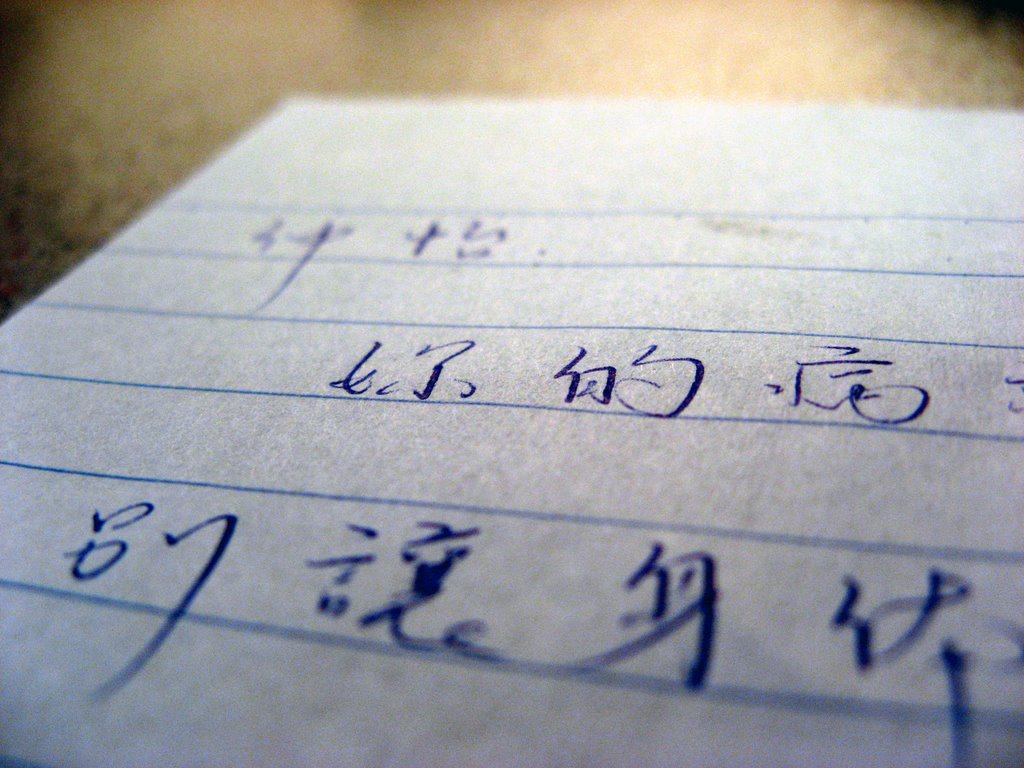 仲怡.
妳的病
別讓身体